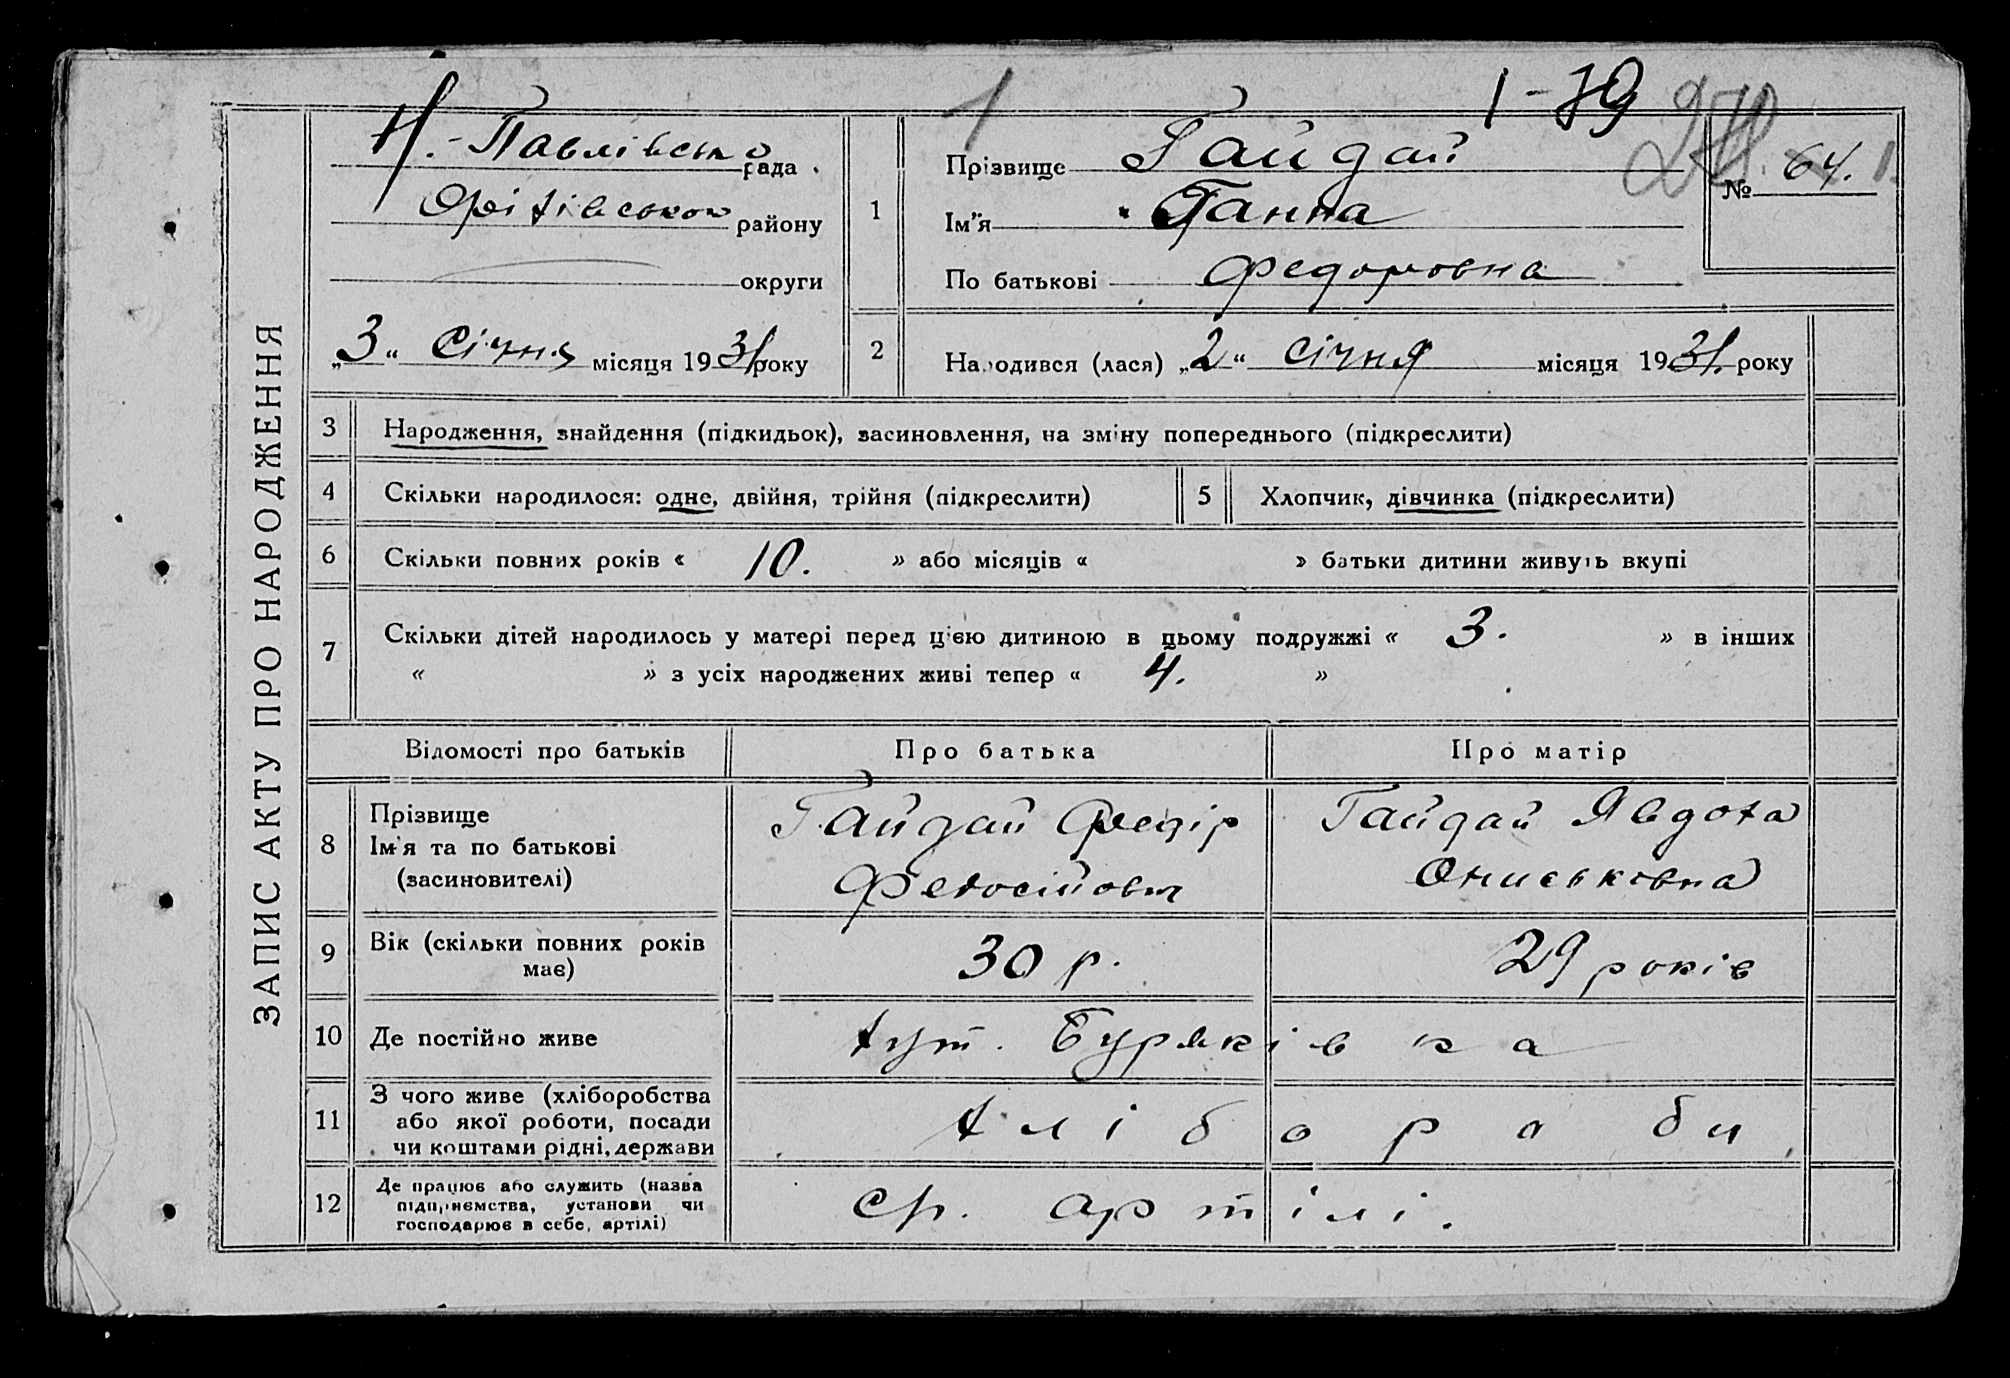 1
1-79
Н.-Павлівсько рада.
Орітівською району
округи
„3“ Січня місяця 1931 року
1
Прізвище Гайдай
Ім'я Ганна
По батькові Федоровна
№ 64.
2
Народився (лася) „2“ січня місяця 1931. року
ЗАПИС АКТУ ПРО НАРОДЖЕННЯ
3 Народження, знайдення (підкидьок), засиновлення, на зміну попереднього (підкреслити)
4 Скільки народилося: одне, двійня, трійня (підкреслити) 5 Хлопчик, дівчинка (підкреслити)
6 Скільки повних років « 10. » або місяців « » батьки дитини живуть вкупі
7 Скільки дітей народилось у матері перед ц'єю дитиною в цьому подружжі « 3. » в інших
« » з усіх народжених живі тепер « 4. »
Відомості про батьків Про батька Про матір
8 Прізвище
Ім'я та по батькові
(засиновителі)
Гайдай Федір
Федосійович
Гайдай Явдоха
Ониськівна
9 Вік (скільки повних років
має)
30 р.
29 років
10 Де постійно живе тут. Буряківка
11 З чого живе (хліборобства
або якої роботи, посади
чи коштами рідні, держави
хлібороби
12 Де працює або служить (назва
підприємства, установи чи
господарює в себе, артілі)
ср. артілі.